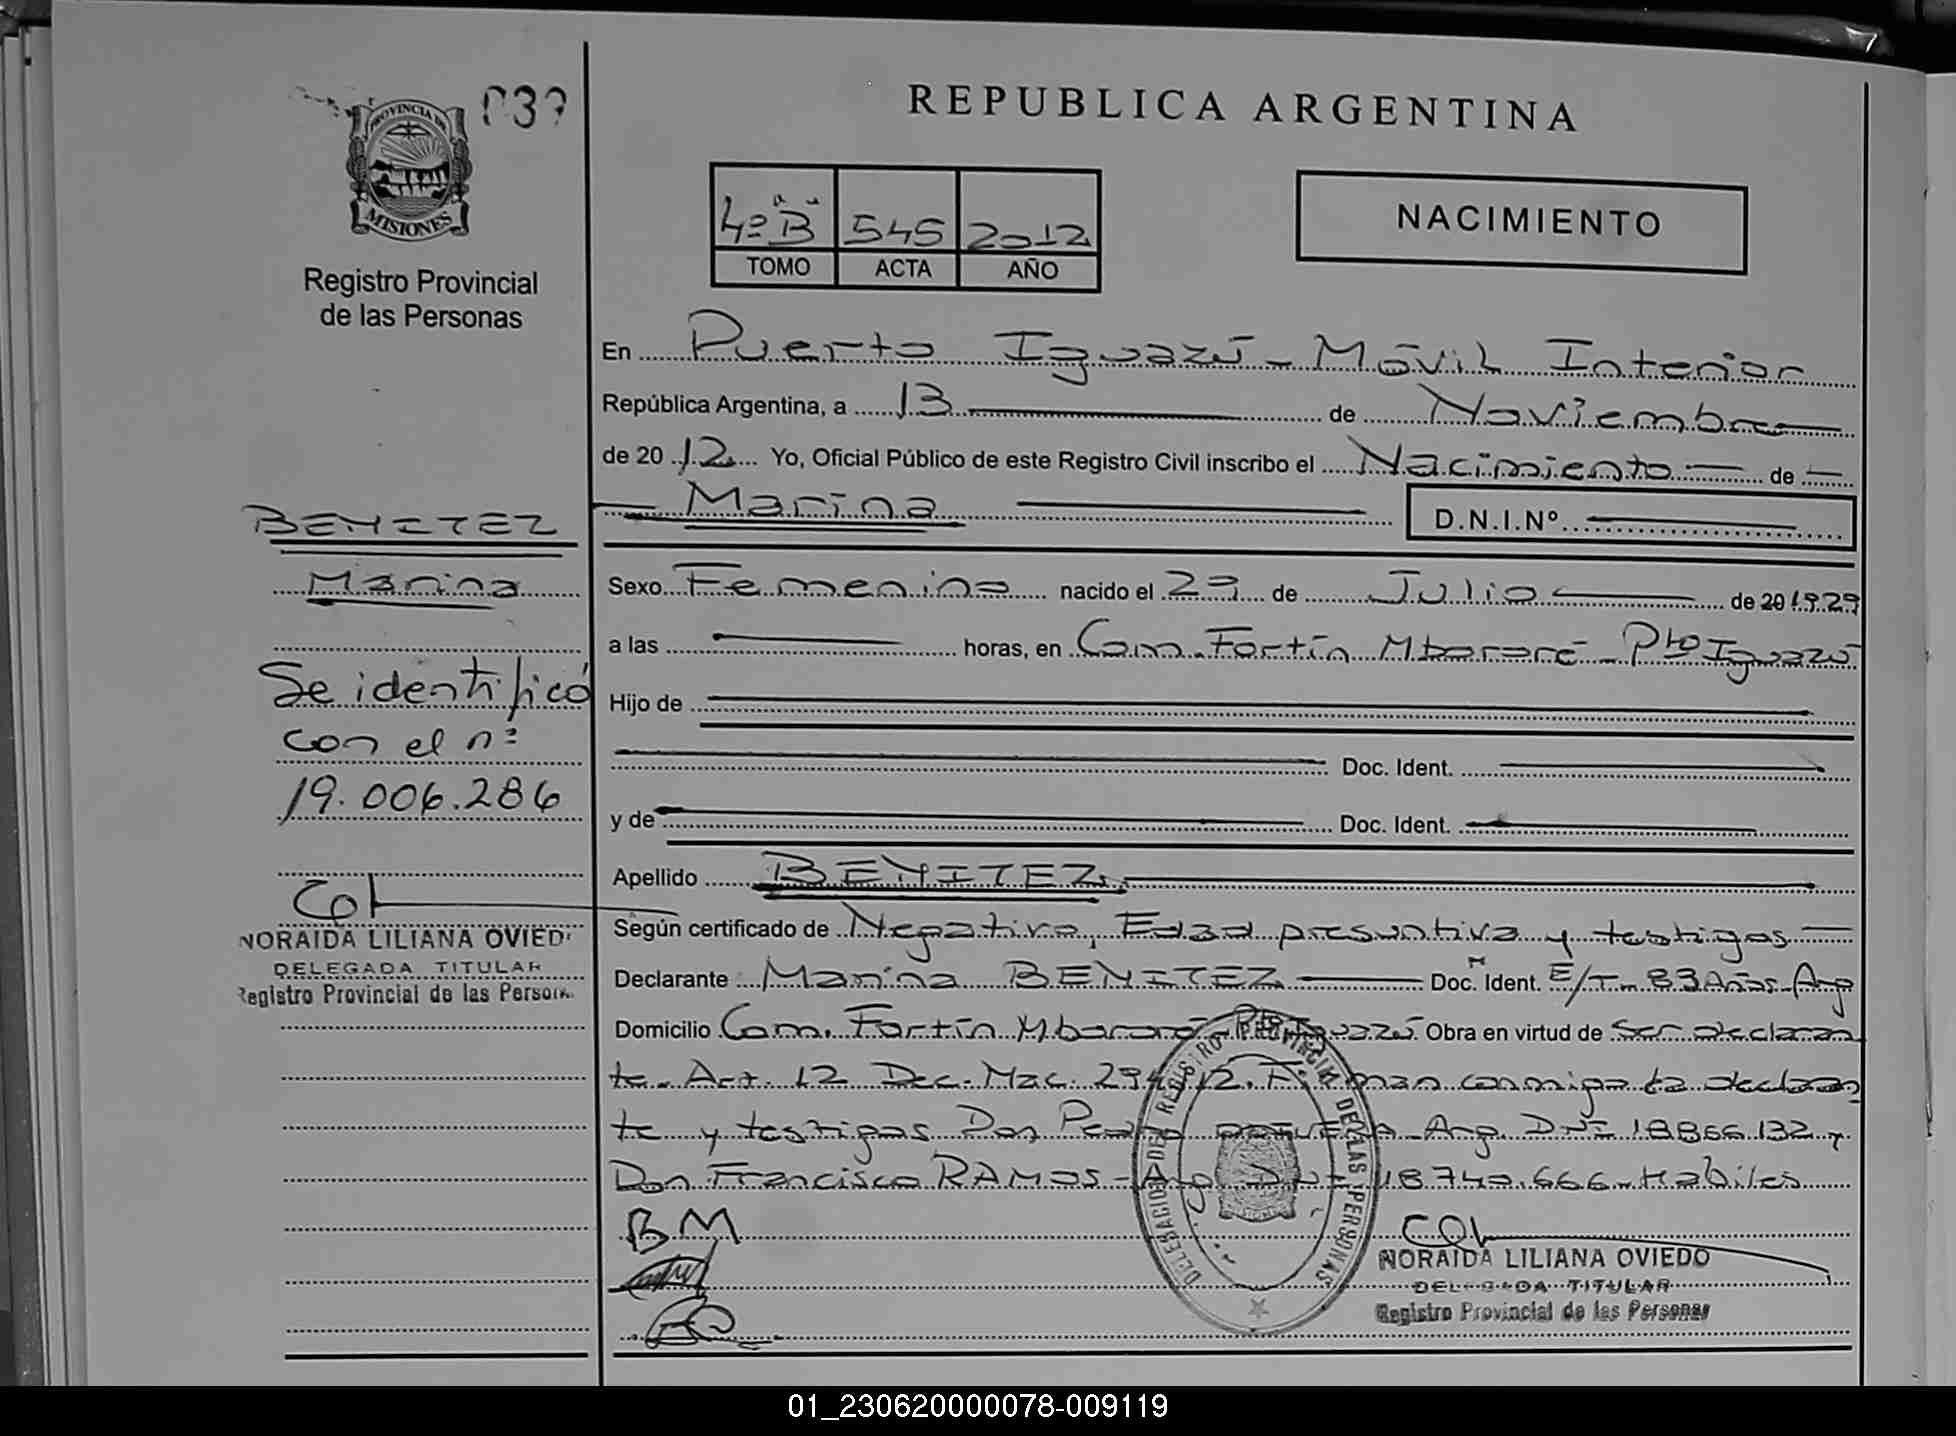 REPUBLICA ARGENTINA
PROVINCIA DE
MISIONES
Registro Provincial
de las Personas
4º "B" 545 2012
TOMO ACTA AÑO
NACIMIENTO
En Puerto Iguazú - Móvil Interior
República Argentina, a 13 de Noviembre
de 2012 Yo, Oficial Público de este Registro Civil inscribo el Nacimiento de
Marina D.N.I.Nº
BENITEZ
Marina
Se identificó
con el nº
19.006.286
NORAIDA LILIANA OVIED
DELEGADA TITULAR
Registro Provincial de las Person
Sexo Femenino nacido el 29 de Julio de 20 1929
a las horas, en Com. Fortín Mbororé - Pto Iguazú
Hijo de
Doc. Ident.
y de Doc. Ident.
Apellido BENITEZ
Según certificado de Negativo, Edad presuntiva y testigos
Declarante Marina BENITEZ Doc. Ident. E/T - 83 Años - Arg
Domicilio Com. Fortín Mbororé - Pto Iguazú Obra en virtud de ser declaran
te. Art. 12 Dec. Nac. 294/12. Firman conmigo la declaran
te y testigos Don Arg. DNI 18866.132 y
Don Francisco RAMOS - Arg DNI 18.740.666 - Hábiles
BM
DELEGACION DEL REGISTRO PROVINCIAL DE LAS PERSONAS
NORAIDA LILIANA OVIEDO
DELEGADA TITULAR
Registro Provincial de las Personas
01_230620000078-009119